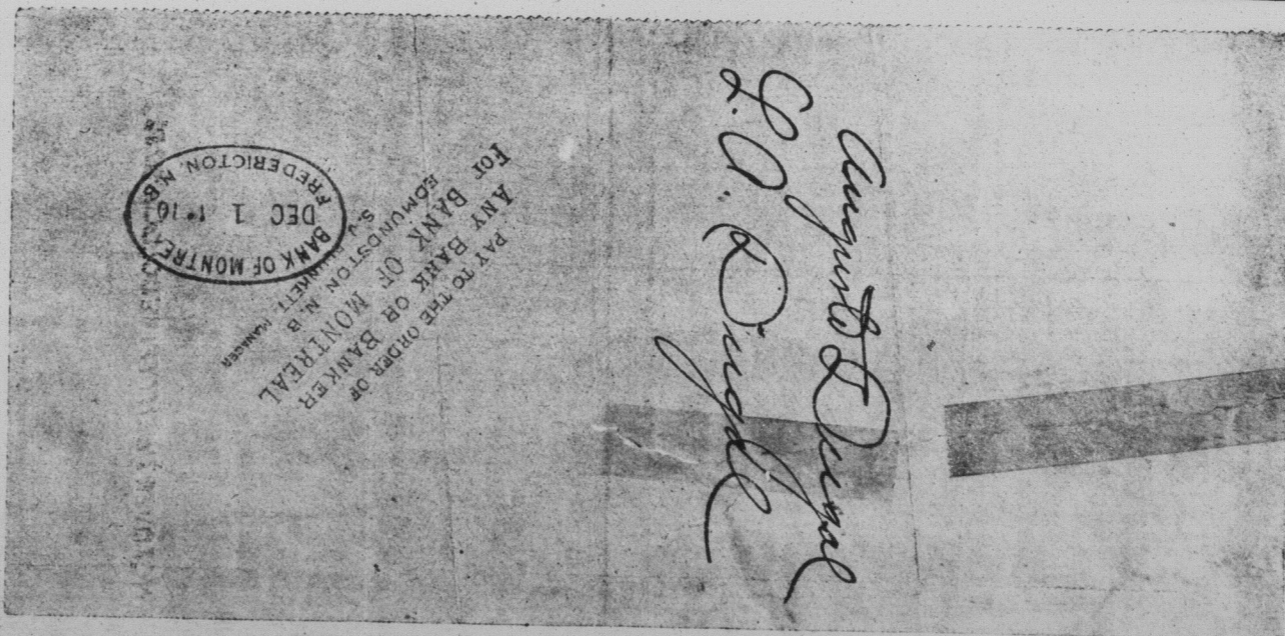 Augusto Dugal
L. A. Dugal
PAY TO THE ORDER OF
ANY BANK OR BANKER
For BANK OF MONTREAL
EDMUNDSTON, N. B.
MANAGER
BANK OF MONTREAL
DEC 1
FREDERICTON, N.B.